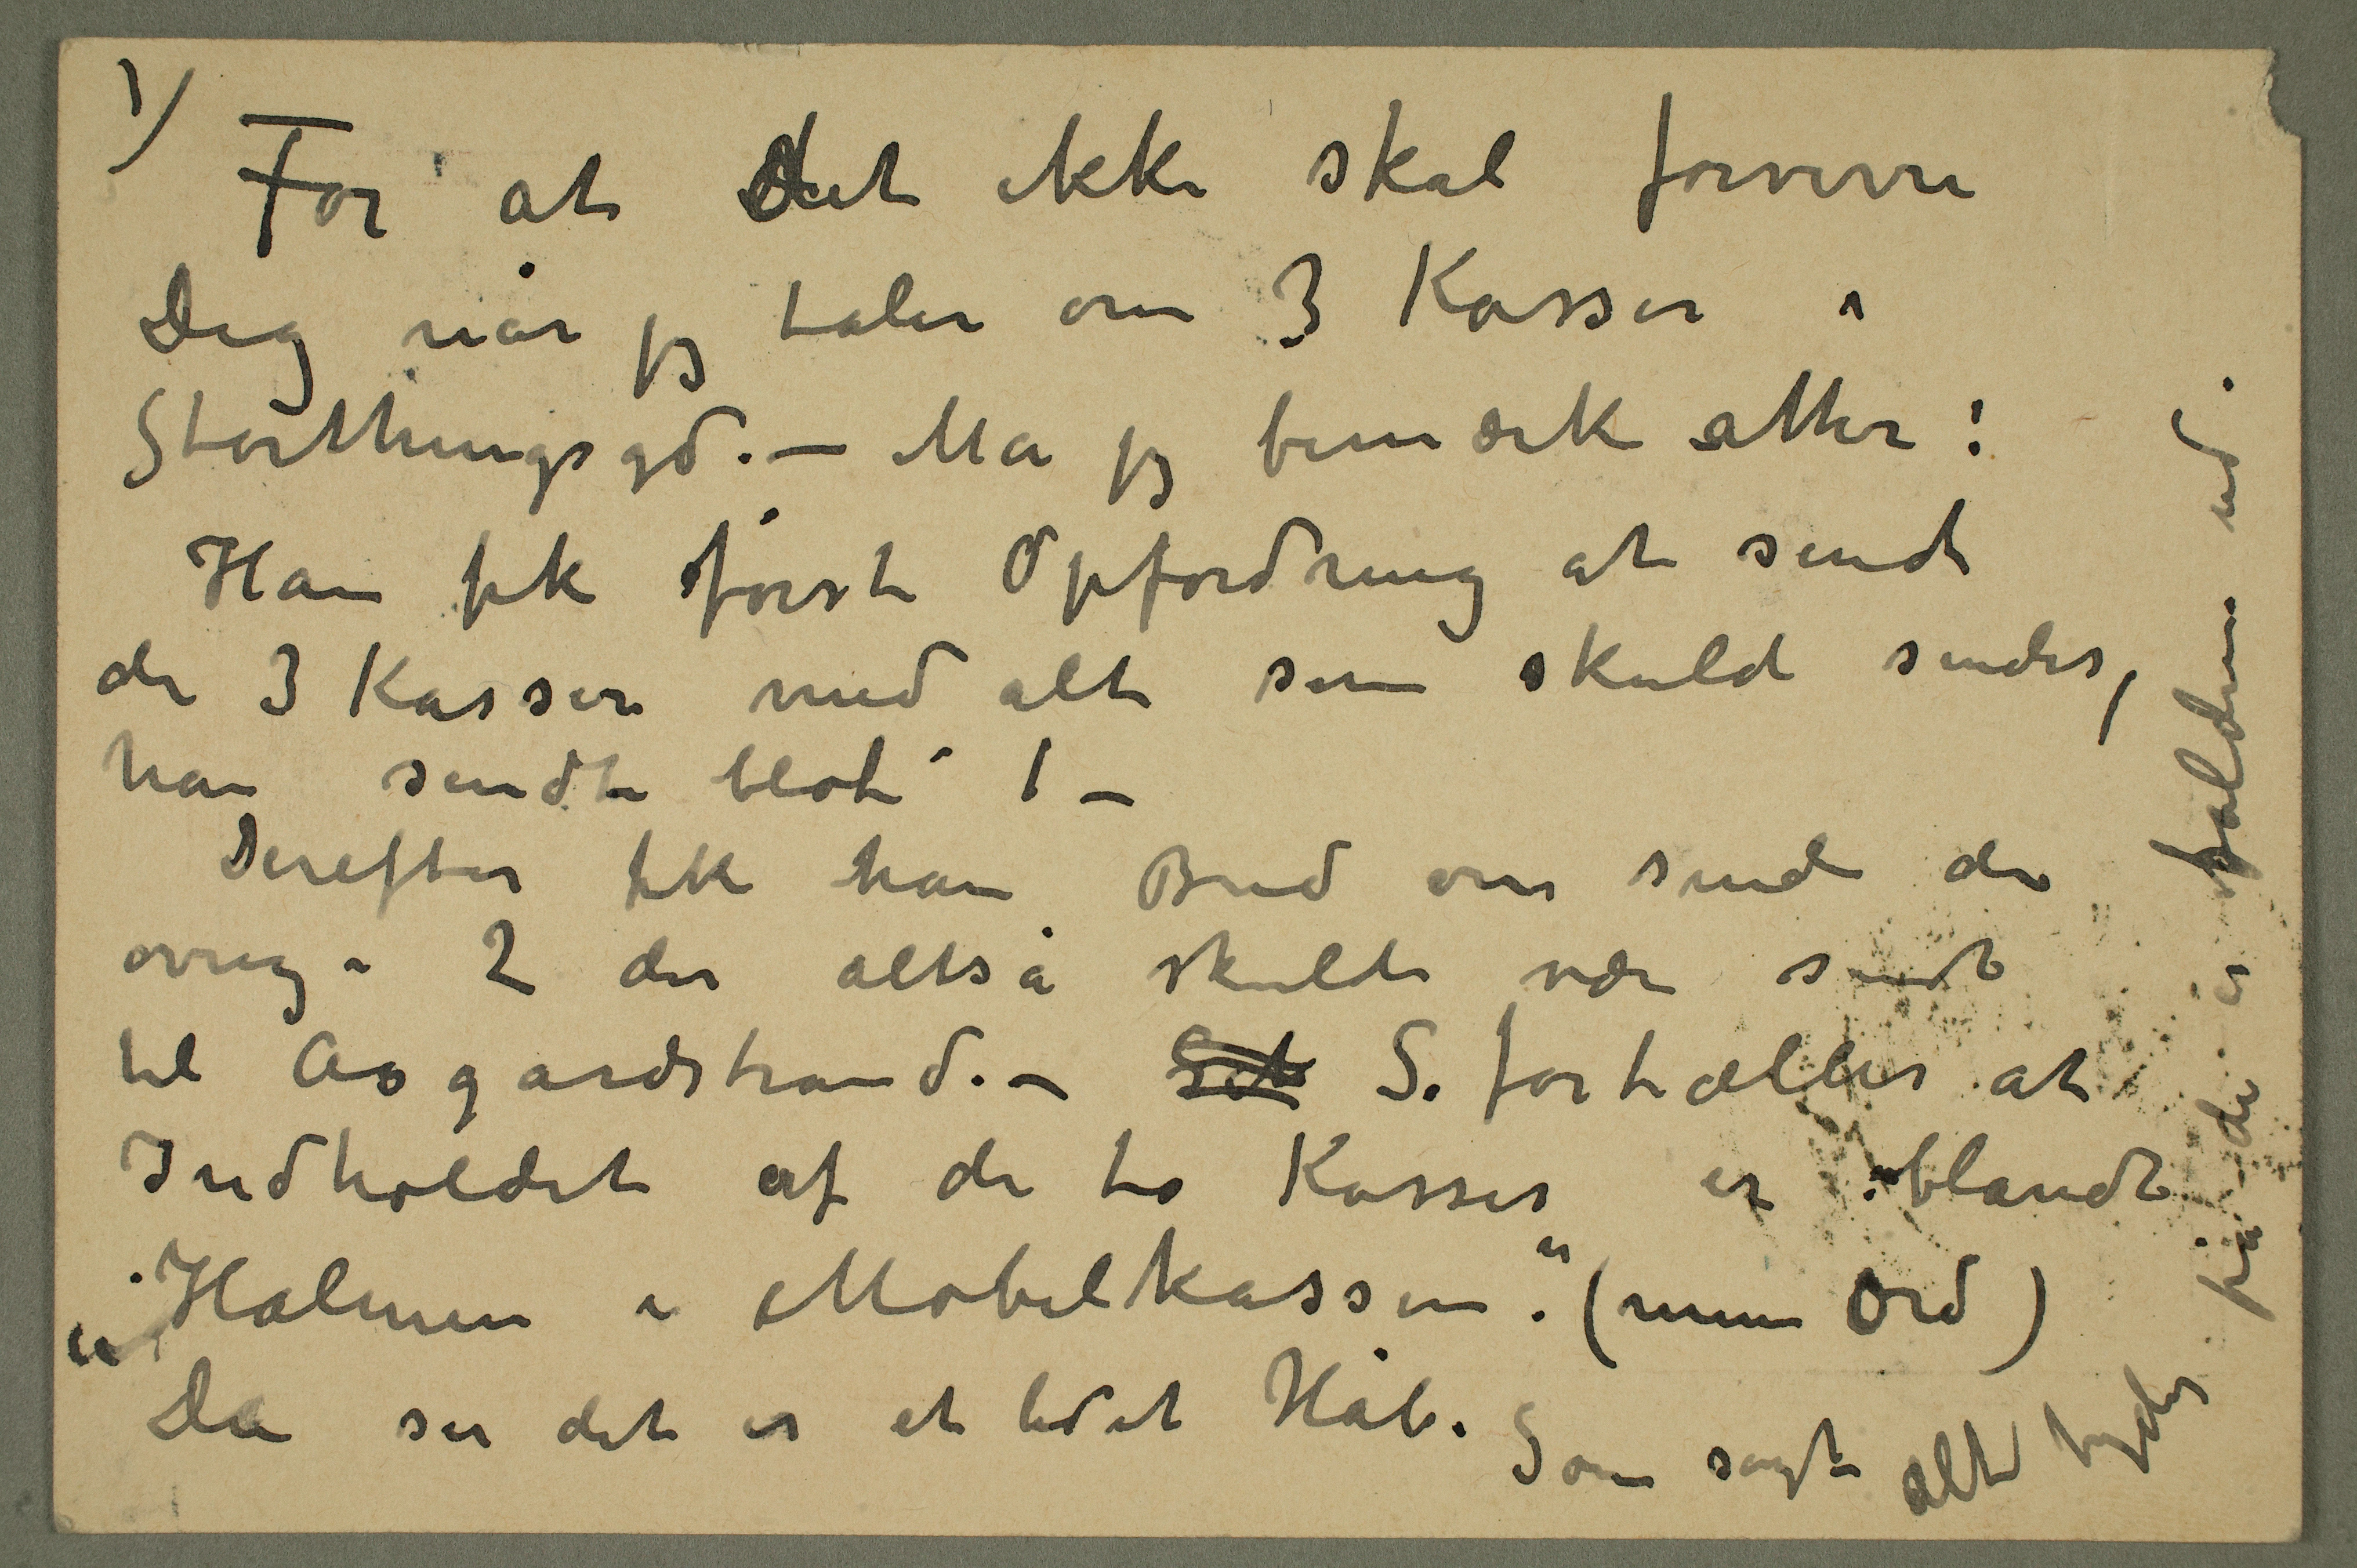 1/
For at det ikke skal forvirre
Dig når jeg taler om 3 Kasser i
Storthingsgd. – Må jeg bemærke atter:
Han fik først Opfordring at sende
de 3 Kasser med alt som skulde sendes,
han sendte blot 1 –
Derefter fik han Bud om sende de
øvrige 2 der altså skulde være sendt
til Aasgardstrand. – S. fortæller at
Indholdet af de to Kasser er iblandt
„Halmen i Møbelkassen.“ (mine Ord)
Du ser det er et lidet Håb. Som sagt alt tyder
på de er falden ud i